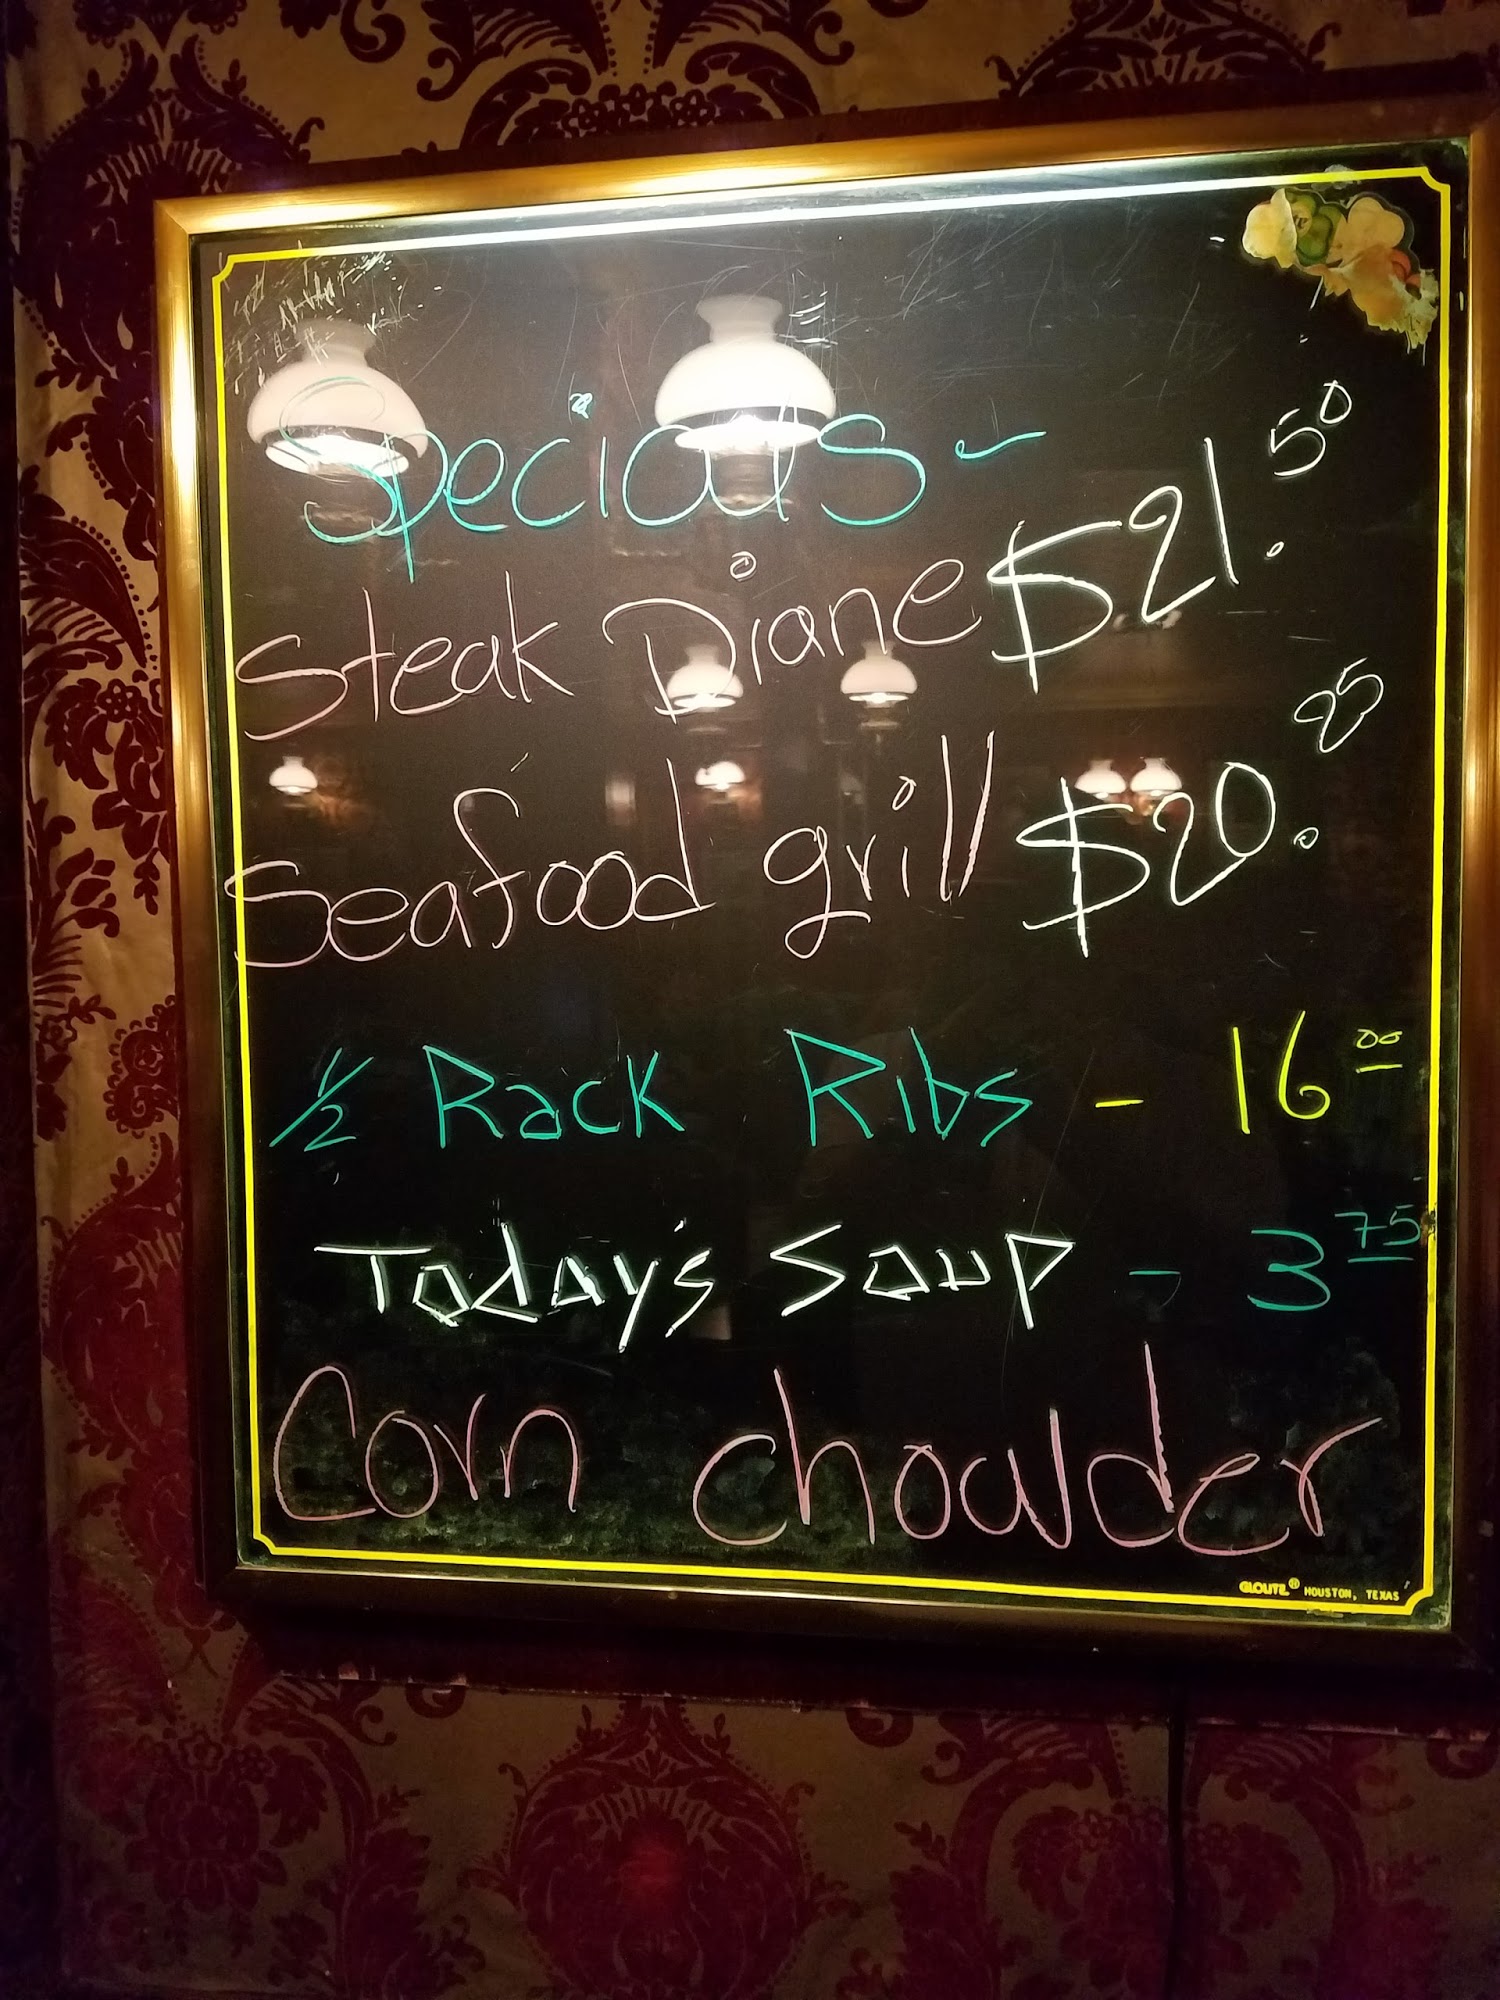 Specials ~
Steak Diane $21.50
Seafood grill $20.25
1/2 Rack Ribs - 16 00
Today's Soup - 3 75
Corn chowder
HOUSTON, TEXAS